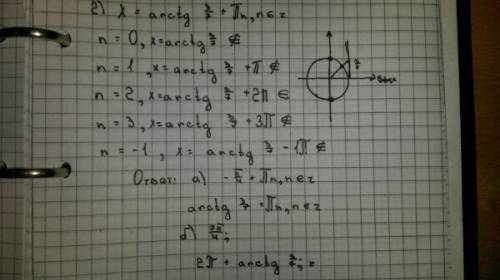 2) x = arctg 2/7 + πn, n∈z
n = 0, x = arctg 2/7 ∉
n = 1, x = arctg 2/7 + π ∉
n = 2, x = arctg 2/7 + 2π ∈
n = 3, x = arctg 2/7 + 3π ∉
n = -1, x = arctg 2/7 - 1π ∉
Ответ: а) -π/4 + πn, n∈z
arctg 2/7 + πn, n∈z
б) 7π/4;
2π + arctg 2/7;